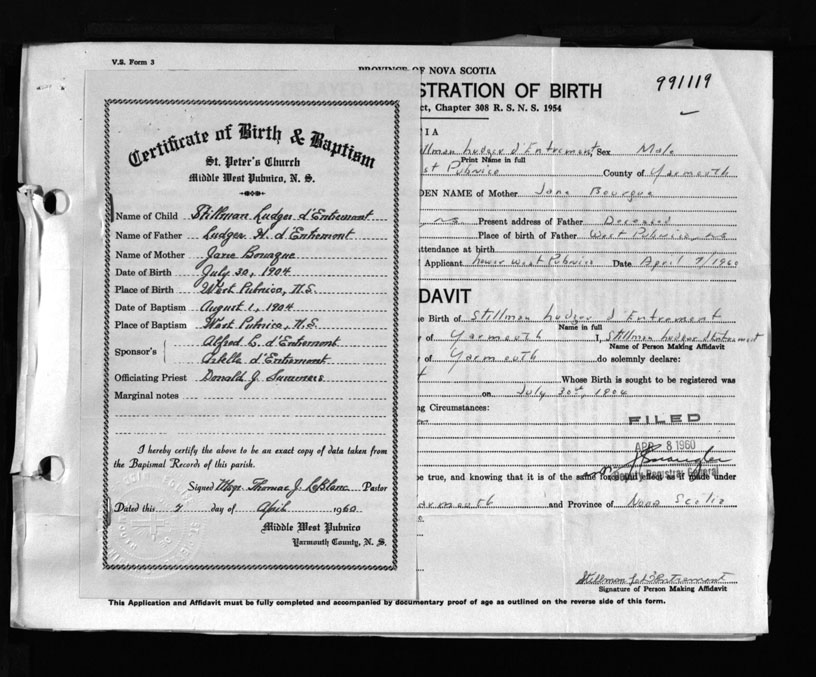 V.S. Form 3
PROVINCE OF NOVA SCOTIA
STRATION OF BIRTH
991119
ct, Chapter 308 R. S. N. S. 1954
Certificate of Birth & Baptism
St. Peter's Church
Middle West Pubnico, N. S.
Name of Child Stillman Ludger d'Entremont
Name of Father Ludger H. d'Entremont
Name of Mother Jane Bourque
Date of Birth July 30, 1904
Place of Birth West Pubnico, N.S.
Date of Baptism August 1, 1904
Place of Baptism West Pubnico, N.S.
Sponsor's { Alfred C. d'Entremont
d'Entremont
Officiating Priest Donald J. Summers
Marginal notes
I hereby certify the above to be an exact copy of data taken from
the Bapismal Records of this parish.
Signed Thomas J. LeBlanc Pastor
Dated this 7 day of April 1960
Middle West Pubnico
Yarmouth County, N. S.
IA
illman Ludger d'Entremont, Sex Male
Print Name in full
st Pubnico County of Yarmouth
DEN NAME of Mother Jane Bourque
N.S. Present address of Father Deceased
Place of birth of Father West Pubnico, N.S.
ttendance at birth
Applicant Lower West Pubnico Date April 7/1960
DAVIT
e Birth of Stillman Ludger d Entremont
Name in full
of Yarmouth I, Stillman Ludger d'Entremont
Name of Person Making Affidavit
of Yarmouth do solemnly declare:
t Whose Birth is sought to be registered was
on July 30, 1904
g Circumstances:
FILED
APR 8 1960
Deputy Registrar General
be true, and knowing that it is of the same force and effect as if made under
armouth and Province of Nova Scotia
Stillman L. d'Entremont
Signature of Person Making Affidavit
This Application and Affidavit must be fully completed and accompanied by documentary proof of age as outlined on the reverse side of this form.